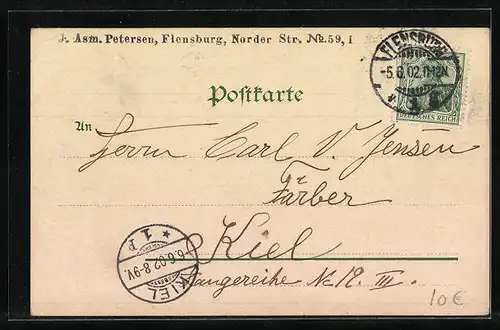 J. Asm. Petersen, Flensburg, Norder Str. No. 59, I
FLENSBURG
-5.6.02.11-12N.
* 1 a
DEUTSCHES REICH
Postkarte
An
Herrn Carl V. Jensen
Färber
Kiel
Langereihe No 12. III.
KIEL
-6.6.02.8-9V.
* 1 P
10€